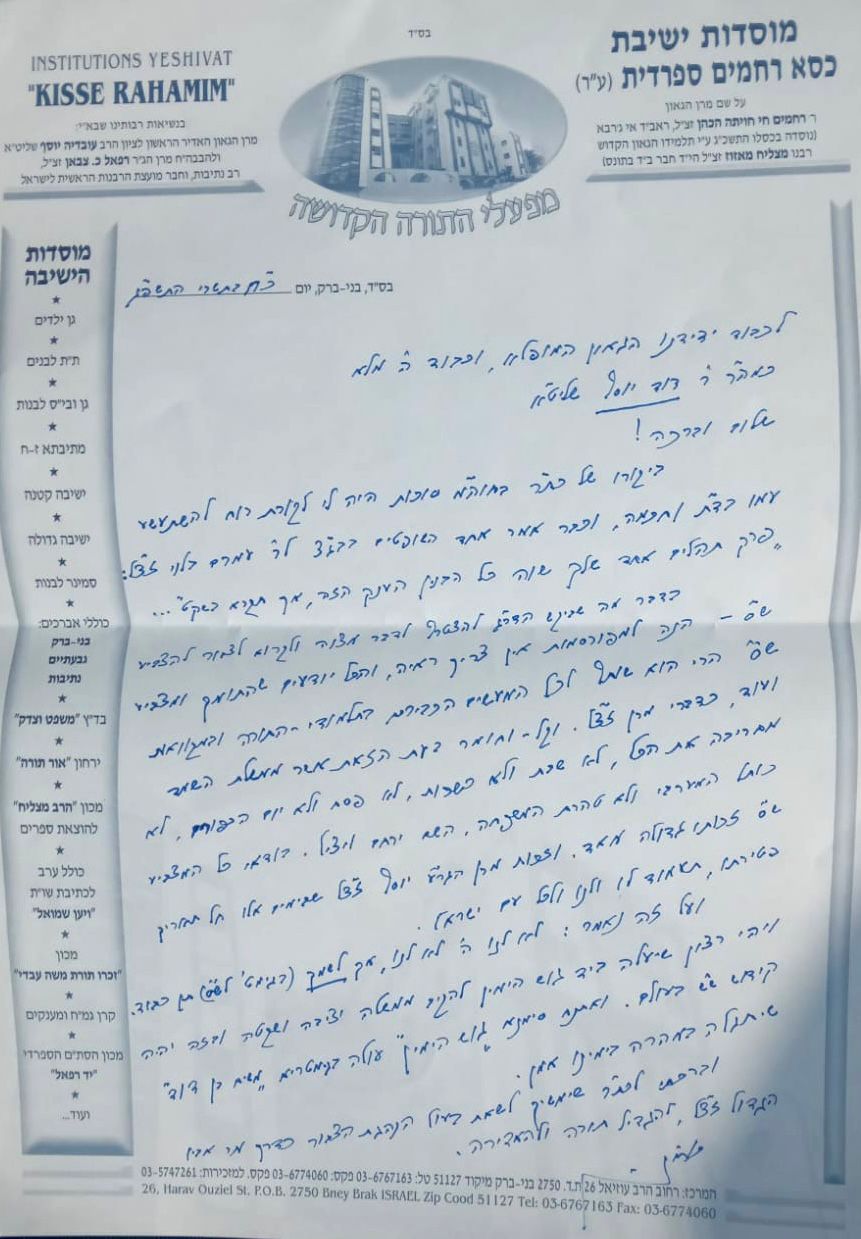 בס"ד
מוסדות ישיבת
כסא רחמים ספרדית (ע"ר)
על שם מרן הגאון
ר' רחמים חי חויתה הכהן זצ"ל, ראב"ד אי ג'רבא
(נוסדה בכסלו התשכ"ג ע"י תלמידו הגאון הקדוש
רבנו מצליח מאזוז זצ"ל הי"ד חבר ב"ד בתונס)
INSTITUTIONS YESHIVAT
"KISSE RAHAMIM"
בנשיאות רבותינו שבא"י:
מרן הגאון האדיר הראשון לציון הרב עובדיה יוסף שליט"א
ולהבבה"ח מרן הג"ר רפאל כ. צבאן זצ"ל,
רב נתיבות, וחבר מועצת הרבנות הראשית לישראל
מפעלי התורה הקדושה
מוסדות
הישיבה
גן ילדים
ת"ת לבנים
גן ובי"ס לבנות
מתיבתא ז-ח
ישיבה קטנה
ישיבה גדולה
סמינר לבנות
כוללי אברכים:
בני-ברק
גבעתיים
נתיבות
בד"ץ "משפט וצדק"
ירחון "אור תורה"
מכון "הרב מצליח"
להוצאת ספרים
כולל ערב
לכתיבת שו"ת
"ויען שמואל"
מכון
"זכרו תורת משה עבדי"
קרן גמ"ח ומענקים
מכון הסת"ם הספרדי
"יד רפאל"
ועוד...
בס"ד, בני-ברק, יום כ"ח בתשרי התשפ"ג
לכבוד ידידנו הגאון המופלא, וכבוד ה' מלא
כמהר"ר דוד יוסף שליט"א
שלום וברכה!
ביקורו של כת"ר בחוה"מ סוכות היה לי לקורת רוח להשתעשע
עמו בד"ת וחכמה, וכבר אמר אחד השופטים בבג"צ לר' עמרם בלוי זצ"ל:
"פרק תהלים אחד שלך שוה כל הבנין הענק הזה, אך תקרא בשקט"...
בדבר מה שביקש הדר"ג להצטרף לדבר מצוה ולקרוא לציבור להצביע
ש"ס – הנה למפורסמות אין צריך ראיה, והכל יודעים שהתומך ומצביע
ש"ס הרי הוא שותף לכל המעשים הכבירים בתלמודי-התורה ובמקוואות
ועוד, כדברי מרן זצ"ל. וקל-וחומר בעת הזאת אשר ממשלת השמד
מחריבה את הכל, לא שבת ולא כשרות, לא פסח ולא יום הכפורים, לא
כותל המערבי ולא טהרת המשפחה, השם ירחם ויציל. בודאי כל המצביע
ש"ס זכותו גדולה מאד. וזכות מרן הגר"ע יוסף זצ"ל שבימים אלו חל תאריך
פטירתו, תעמוד לו ולנו ולכל עם ישראל.
ועל זה נאמר: לא לנו ה' לא לנו, אך לשמך (בגימט' לש"ס) תן כבוד.
ויהי רצון שיעלה ביד גוש הימין להקים ממשלה יציבה ושקטה ובזה יהיה
קידוש ש"ש בעולם. ואתנח סימנא "גוש הימין" עולה בגימטריא "משיח בן דוד"
שיתגלה במהרה בימינו אמן.
וברכתי לכת"ר שימשיך לשאת בעול הנהגת הצבור כדרך מר אביו
הגדול זצ"ל, להגדיל תורה ולהאדירה.
המרכז: רחוב הרב עוזיאל 26 ת.ד. 2750 בני-ברק מיקוד 51127 טל: 03-6767163 פקס: 03-6774060 פקס. למזכירות: 03-5747261
26, Harav Ouziel St. P.O.B. 2750 Bney Brak ISRAEL Zip Cood 51127 Tel: 03-6767163 Fax: 03-6774060